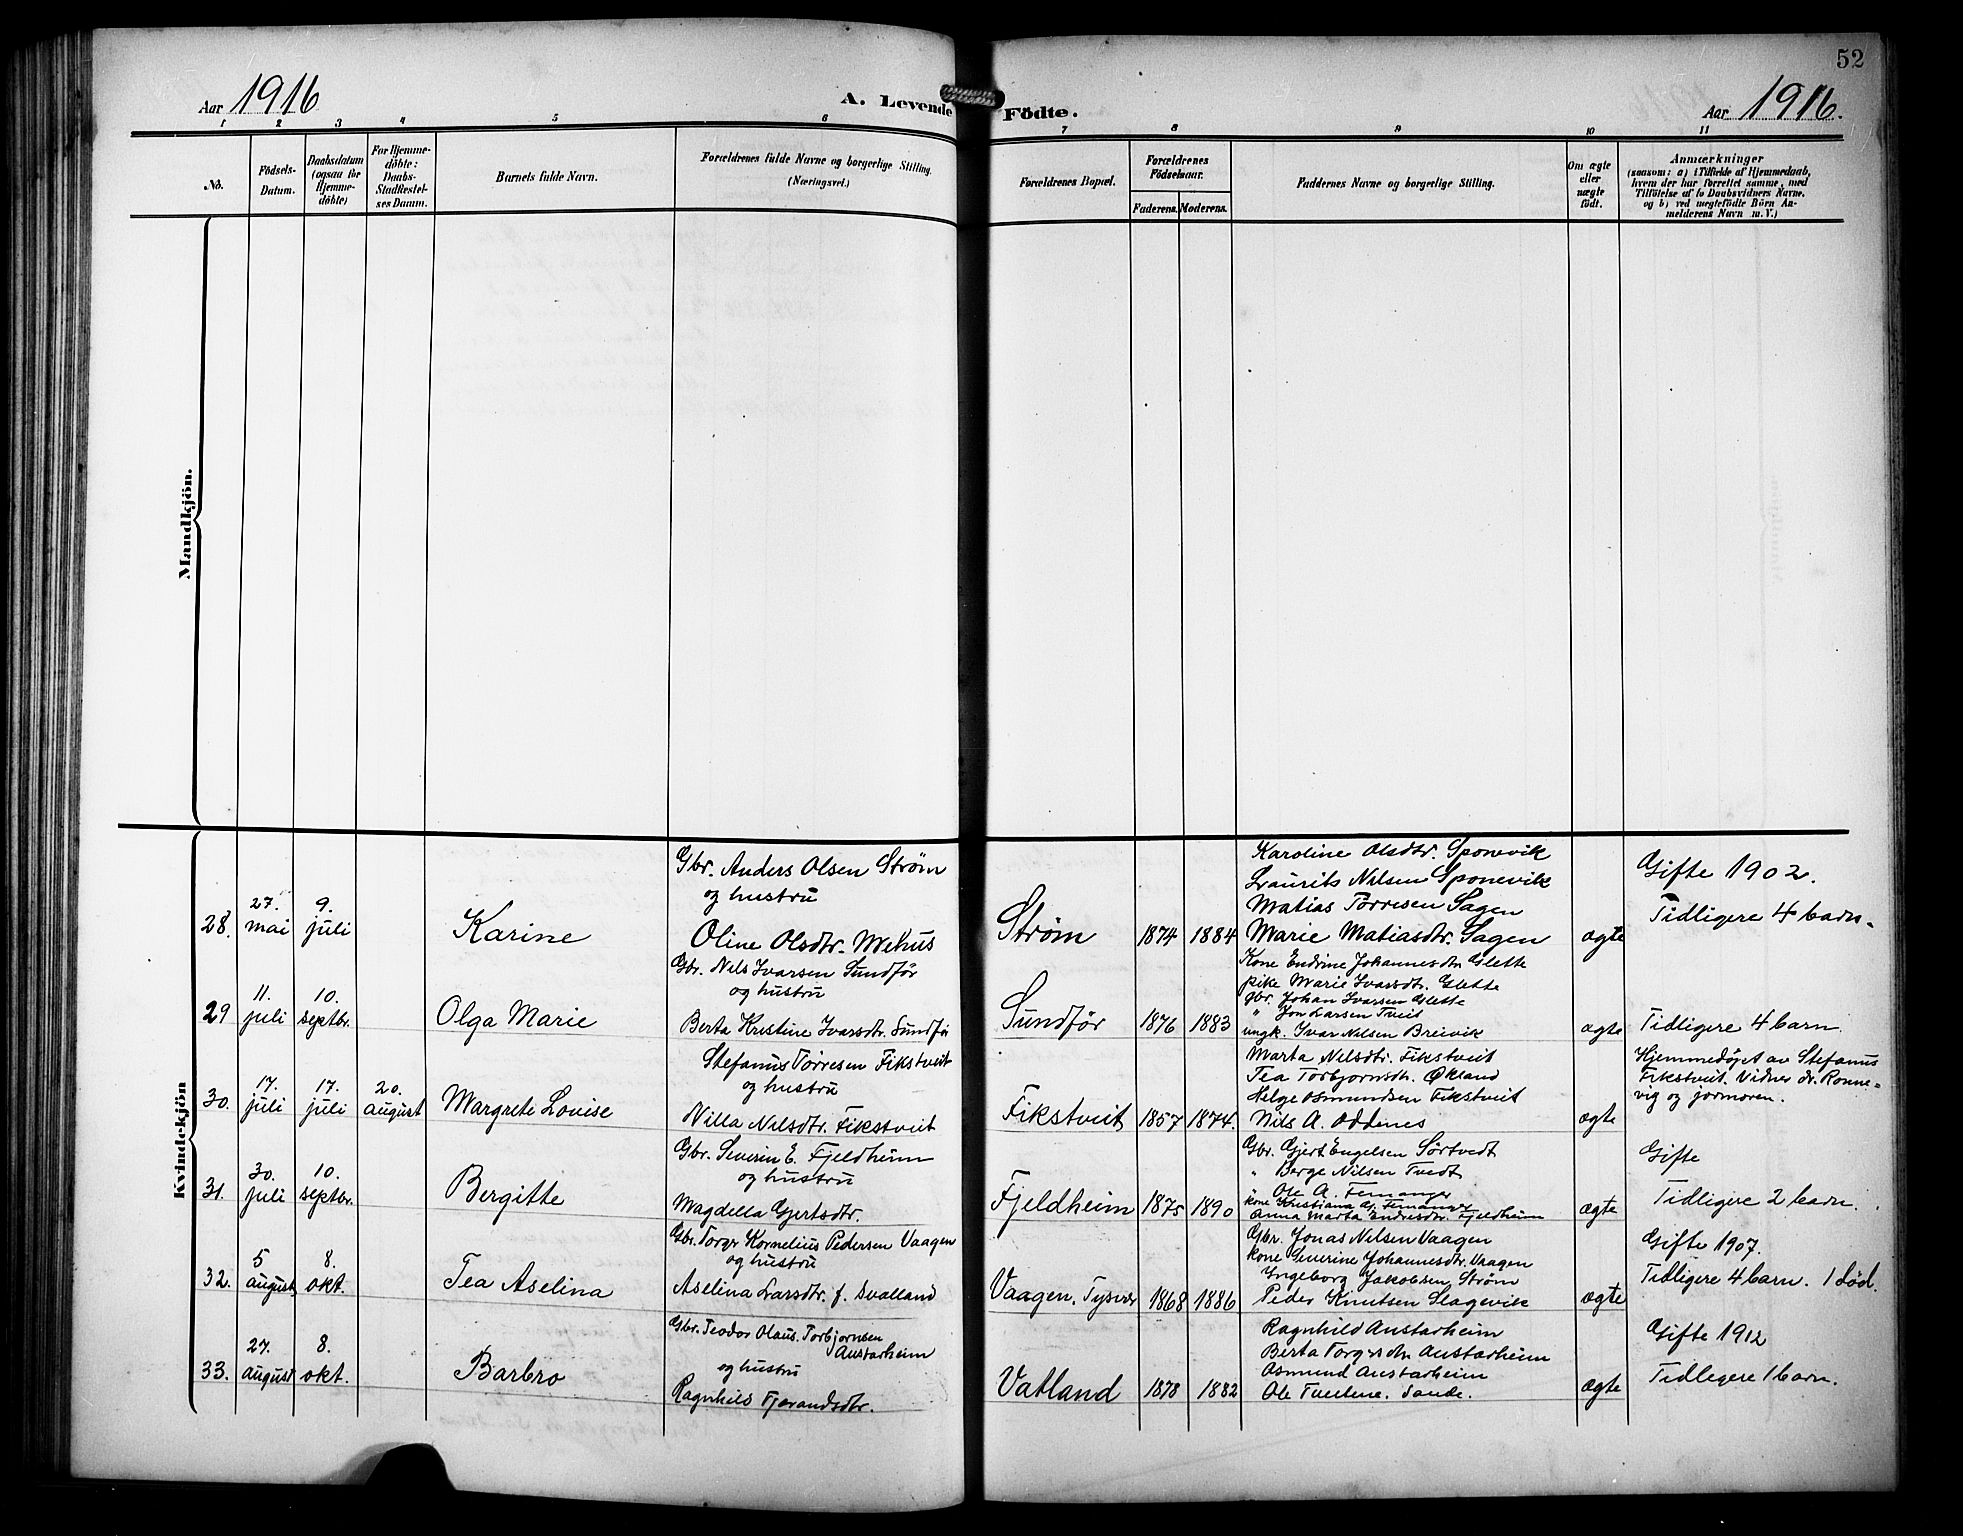 52
Aar 1916
A. Levende Födte.
Aar 1916.
1 2 3 4 5 6 7 8 9 10 11
No.
Födsels-
Datum.
Daabsdatum
(ogsaa for
Hjemme-
døbte)
For Hjemme-
døbte:
Daabs-
Stadfæstel-
ses Datum.
Barnets fulde Navn.
Forældrenes fulde Navne og borgerlige Stilling.
(Næringsvei.)
Forældrenes Bopæl.
Forældrenes
Födselsaar.
Faderens. Moderens.
Faddernes Navne og borgerlige Stilling.
Om ægte
eller
uægte
født.
Anmærkninger
(saasom: a) i Tilfælde af Hjemmedaab,
hvem der har forrettet samme, med
Tilføielse af to Daabsvidners Navne.
og b) ved uægtefødte Børn An-
melderens Navn m. V.)
Mandkjön.
Kvindekjön
28.
27.
mai
9.
juli
Karine
Gbr. Anders Olsen Strøm
og hustru
Oline Olsdtr. Mehus
Strøm
1874
1884
Karoline Olsdtr. Sponevik
Laurits Nilsen Sponevik
Matias Tørresen Sagen
Marie Matiasdtr. Sagen
ægte
Gifte 1902.
Tidligere 4 barn.
29
11.
juli
10.
septbr.
Olga Marie
Gbr. Nils Ivarsen Sundfør
og hustru
Berta Kristine Ivarsdtr. Sundfør
Sundfør
1876
1883
Kone Endrine Johannesdtr. Glette
pike Marie Ivarsdtr. Glette
gbr. Johan Ivarsen Glette
" Jon Larsen Tveit
ungk. Ivar Nilsen Breivik
ægte
Tidligere 4 barn.
30.
17.
juli
17.
juli
20.
august
Margrete Lovise
Stefanus Tørresen Fikstveit
og hustru
Villa Nilsdtr. Fikstveit
Fikstveit
1857
1874.
Marta Nilsdtr. Fikstveit
Tea Torbjørnsdtr. Økland
Helge Osmundsen Fikstveit
Nils A. Oddenes
ægte
Hjemmedøpt av Stefanus
Fikstveit. Vidner dr. Ronne-
vig og jormoren.
31.
30.
juli
10.
septbr.
Bergitte
Gbr. Severin E. Fjeldheim
og hustru
Magdella Gjertsdtr.
Fjeldheim
1875
1890
Gbr. Gjert Engelsen Sørtvedt
" Berge Nilsen Tvedt
" Ole A. Femanger
kone Kristiana G. Femanger
Anna Marta Endresdtr. Fjeldheim
ægte
Gifte
Tidligere 2 barn.
32.
5
august
8.
okt.
Tea Aselina
Gbr. Torgr Kornelius Pedersen Vaagen
og hustru
Aselina Larsdtr. f. Svalland
Vaagen. Tysvær
1868
1886
Gbr. Jonas Nilsen Vaagen
kone Severine Johannesdtr. Vaagen
Yngeborg Jakobsen Strøm
Peder Knutsen Slagevik
ægte
Gifte 1907.
Tidligere 4 barn. 1 død.
33.
27.
august
8.
okt.
Barbro
Gbr. Teodor Olaus. Torbjornsen
Austarheim
og hustru
Ragnhild Fjerandsdtr.
Vatland
1878
1882
Ragnhild Austarheim
Berta Torgrsdtr Austarheim
Osmund Austarheim
Ole Tveitene. Sande.
ægte
Gifte 1912
Tidligere 1 barn.